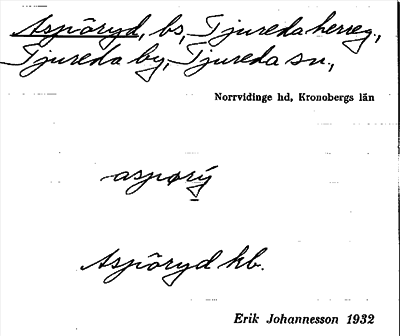 Aspöryd, bs, Tjureda herreg.,
Tjureda by, Tjureda sn.,
Norrvidinge hd, Kronobergs län
aspørý
Aspöryd kb.
Erik Johannesson 1932